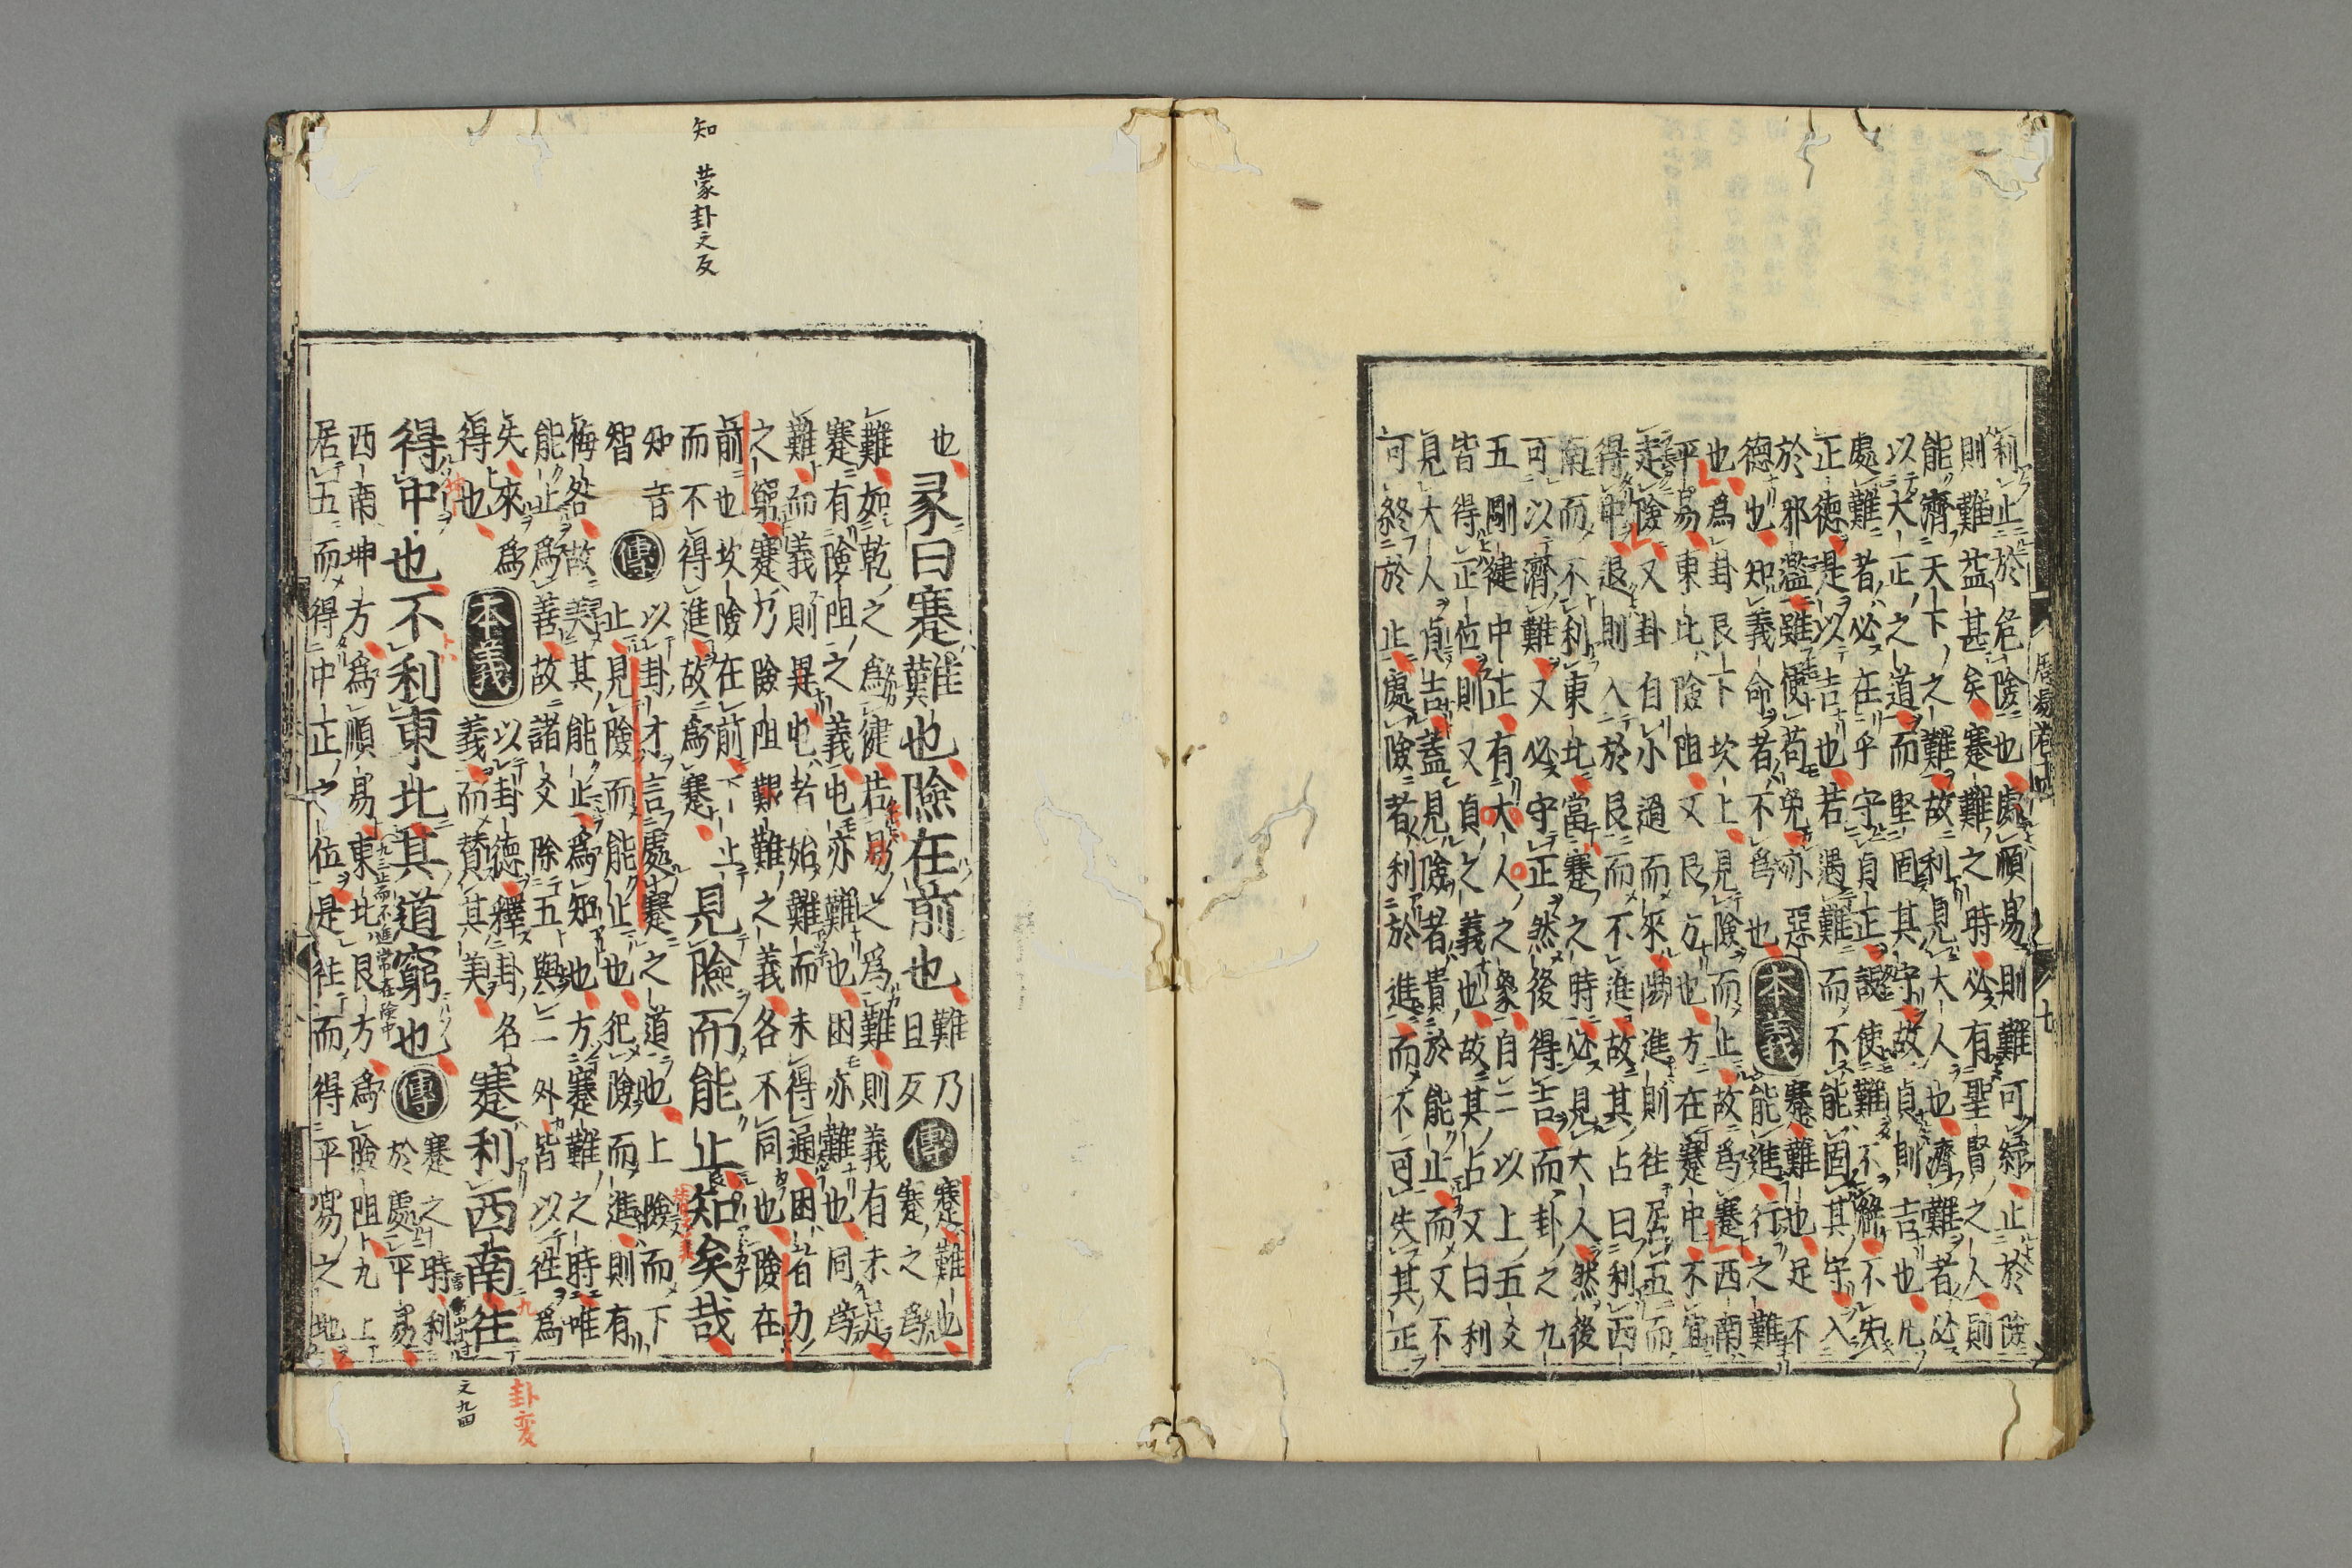 利止於危險也處順易則難可紓止於險
則難益甚矣蹇難之時必有聖賢之人則
能濟天下之難故利見大人也濟難者必
以大正之道而堅固其守故貞則吉也凡
處難者必在乎守貞正設使難不解不失
正德是以吉也若遇難而不能固其守入
於邪濫雖使苟免亦惡
德也知義命者不爲也
本義
蹇難也足不
能進行之難
也爲卦艮下坎上見險而止故爲蹇西南
平易東北險阻又艮方也方在蹇中不宜
走險又卦自小過而來陽進則往居五而
得中退則入於艮而不進故其占曰利西
南而不利東北當蹇之時必見大人然後
可以濟難又必守正然後得吉而卦之九
五剛健中正有大人之象自二以上五爻
皆得正位則又貞之義也故其占又曰利
見大人貞吉蓋見險者貴於能止而又不
可終於止處險者利於進而不可失其正
周易卷十四
七
知 蒙卦之反
也
彖曰蹇難也險在前也
難乃
且反
傳
蹇難也
蹇之爲
難如乾之爲健若易之爲難則義有未足
蹇有險阻之義屯亦難也困亦難也同爲
難而義則異屯者始難而未得通困者力
之窮蹇乃險阻艱難之義各不同也險在
前也坎險在前下止
而不得進故爲蹇
見險而能止知矣哉
知音
智
傳
以卦才言處蹇之道也上險而下
止見險而能止也犯險而進則有
悔咎故美其能止爲知也方蹇難之時唯
能止爲善故諸爻除五與二外皆以往爲
失來爲
得也
本義
以卦德釋卦名
義而贊其美
蹇利西南往
得中也不利東北其道窮也
傳
蹇之時利
於處平易
西南坤方爲順易東北艮方爲險阻九上
居五而得中正之位是往而得平易之地
九三止而不進常在險中
卦変
文九四